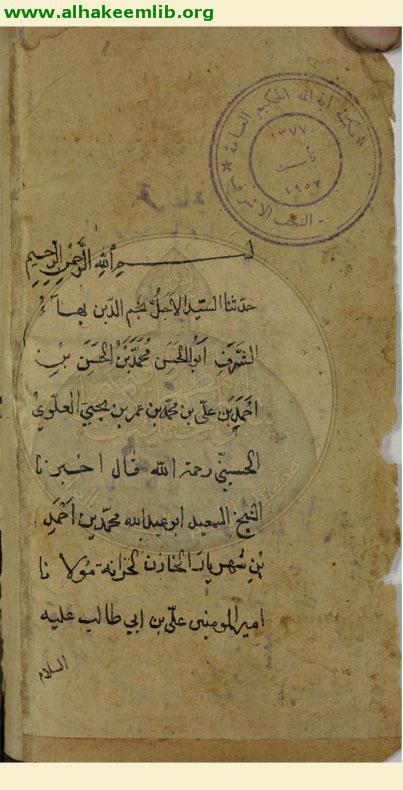 www.alhakeemlib.org
مكتبة آية الله الحكيم العامة
١٣٧٧
١٩٥٧
النجف الاشرف
بسم الله الرحمن الرحيم
حدثنا السيد الاجل نجم الدين بهاء
الشرف ابو الحسن محمد بن الحسن بن
احمد بن علي بن محمد بن عمر بن يحيى العلوي
الحسيني رحمة الله قال اخبرنا
الشيخ السعيد ابو عبد الله محمد بن احمد
بن شهريار الخازن لخزانة مولانا
امير المومنين علي بن ابي طالب عليه
السلام